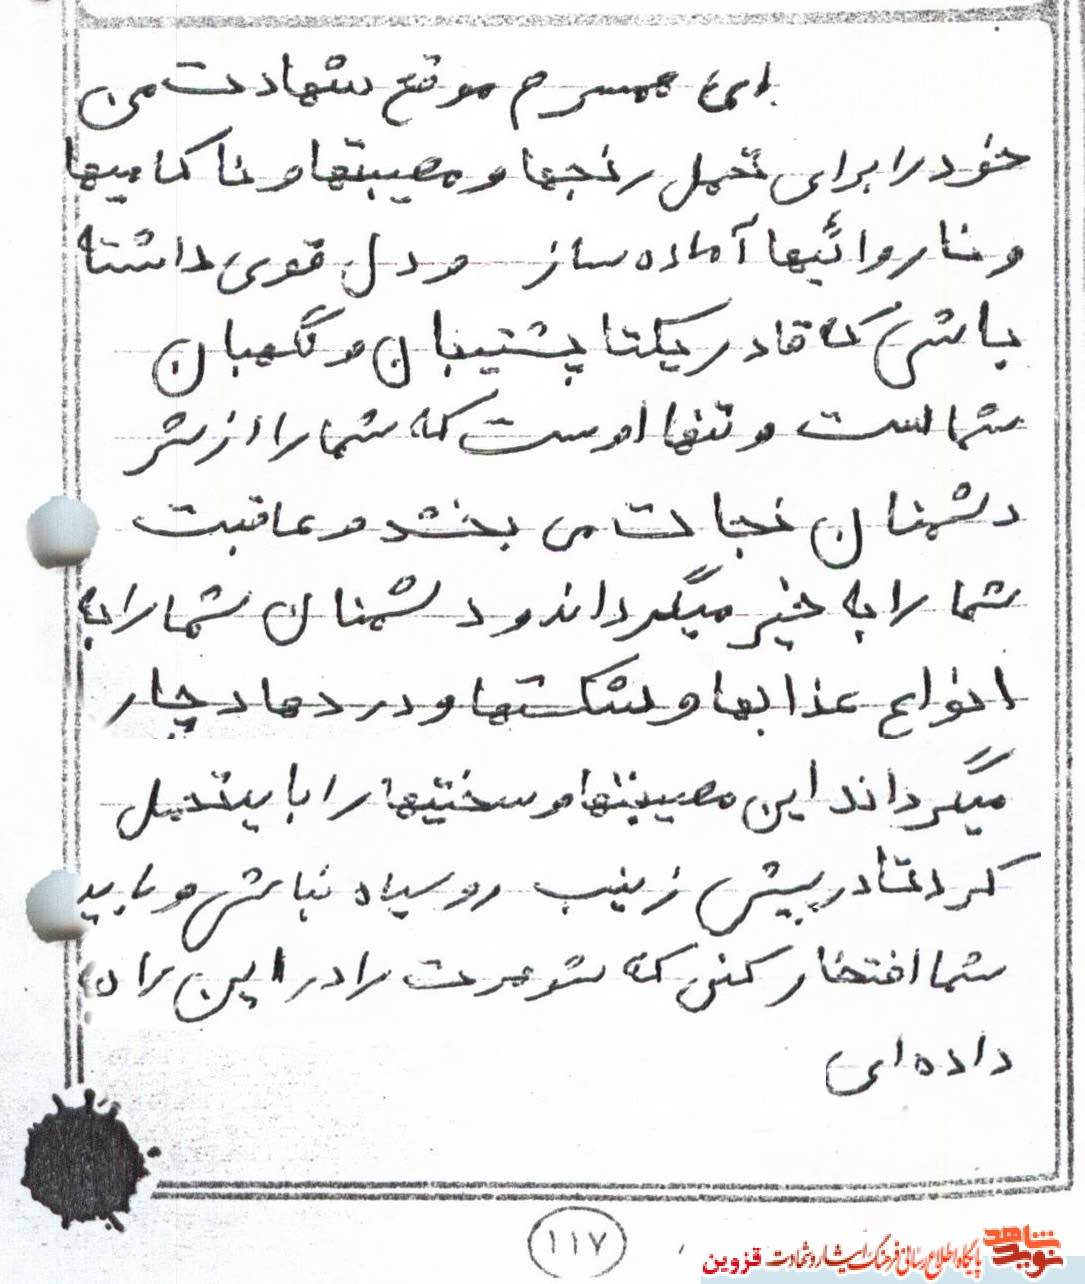 ای همسرم موقع شهادت من
خود را برای تحمل رنجها و مصیبتها و ناکامیها
و ناروائیها آماده ساز و دل قوی داشته
باشی که قادر یکتا پشتیبان و نگهبان
شماست و تنها اوست که شما را از شر
دشمنان نجات می بخشد و عاقبت
شما را به خیر میگرداند و دشمنان شما را به
انواع عذابها و شکستها و دردها دچار
میگرداند این مصیبتها و سختیها را باید تحمل
کرد تا در پیش زینب رو سیاه نباشی و باید
شما افتخار کنی که شوهرت را در این راه
داده ای
۱۱۷
نوید شاهد
پایگاه اطلاع رسانی فرهنگ ایثار و شهادت قزوین